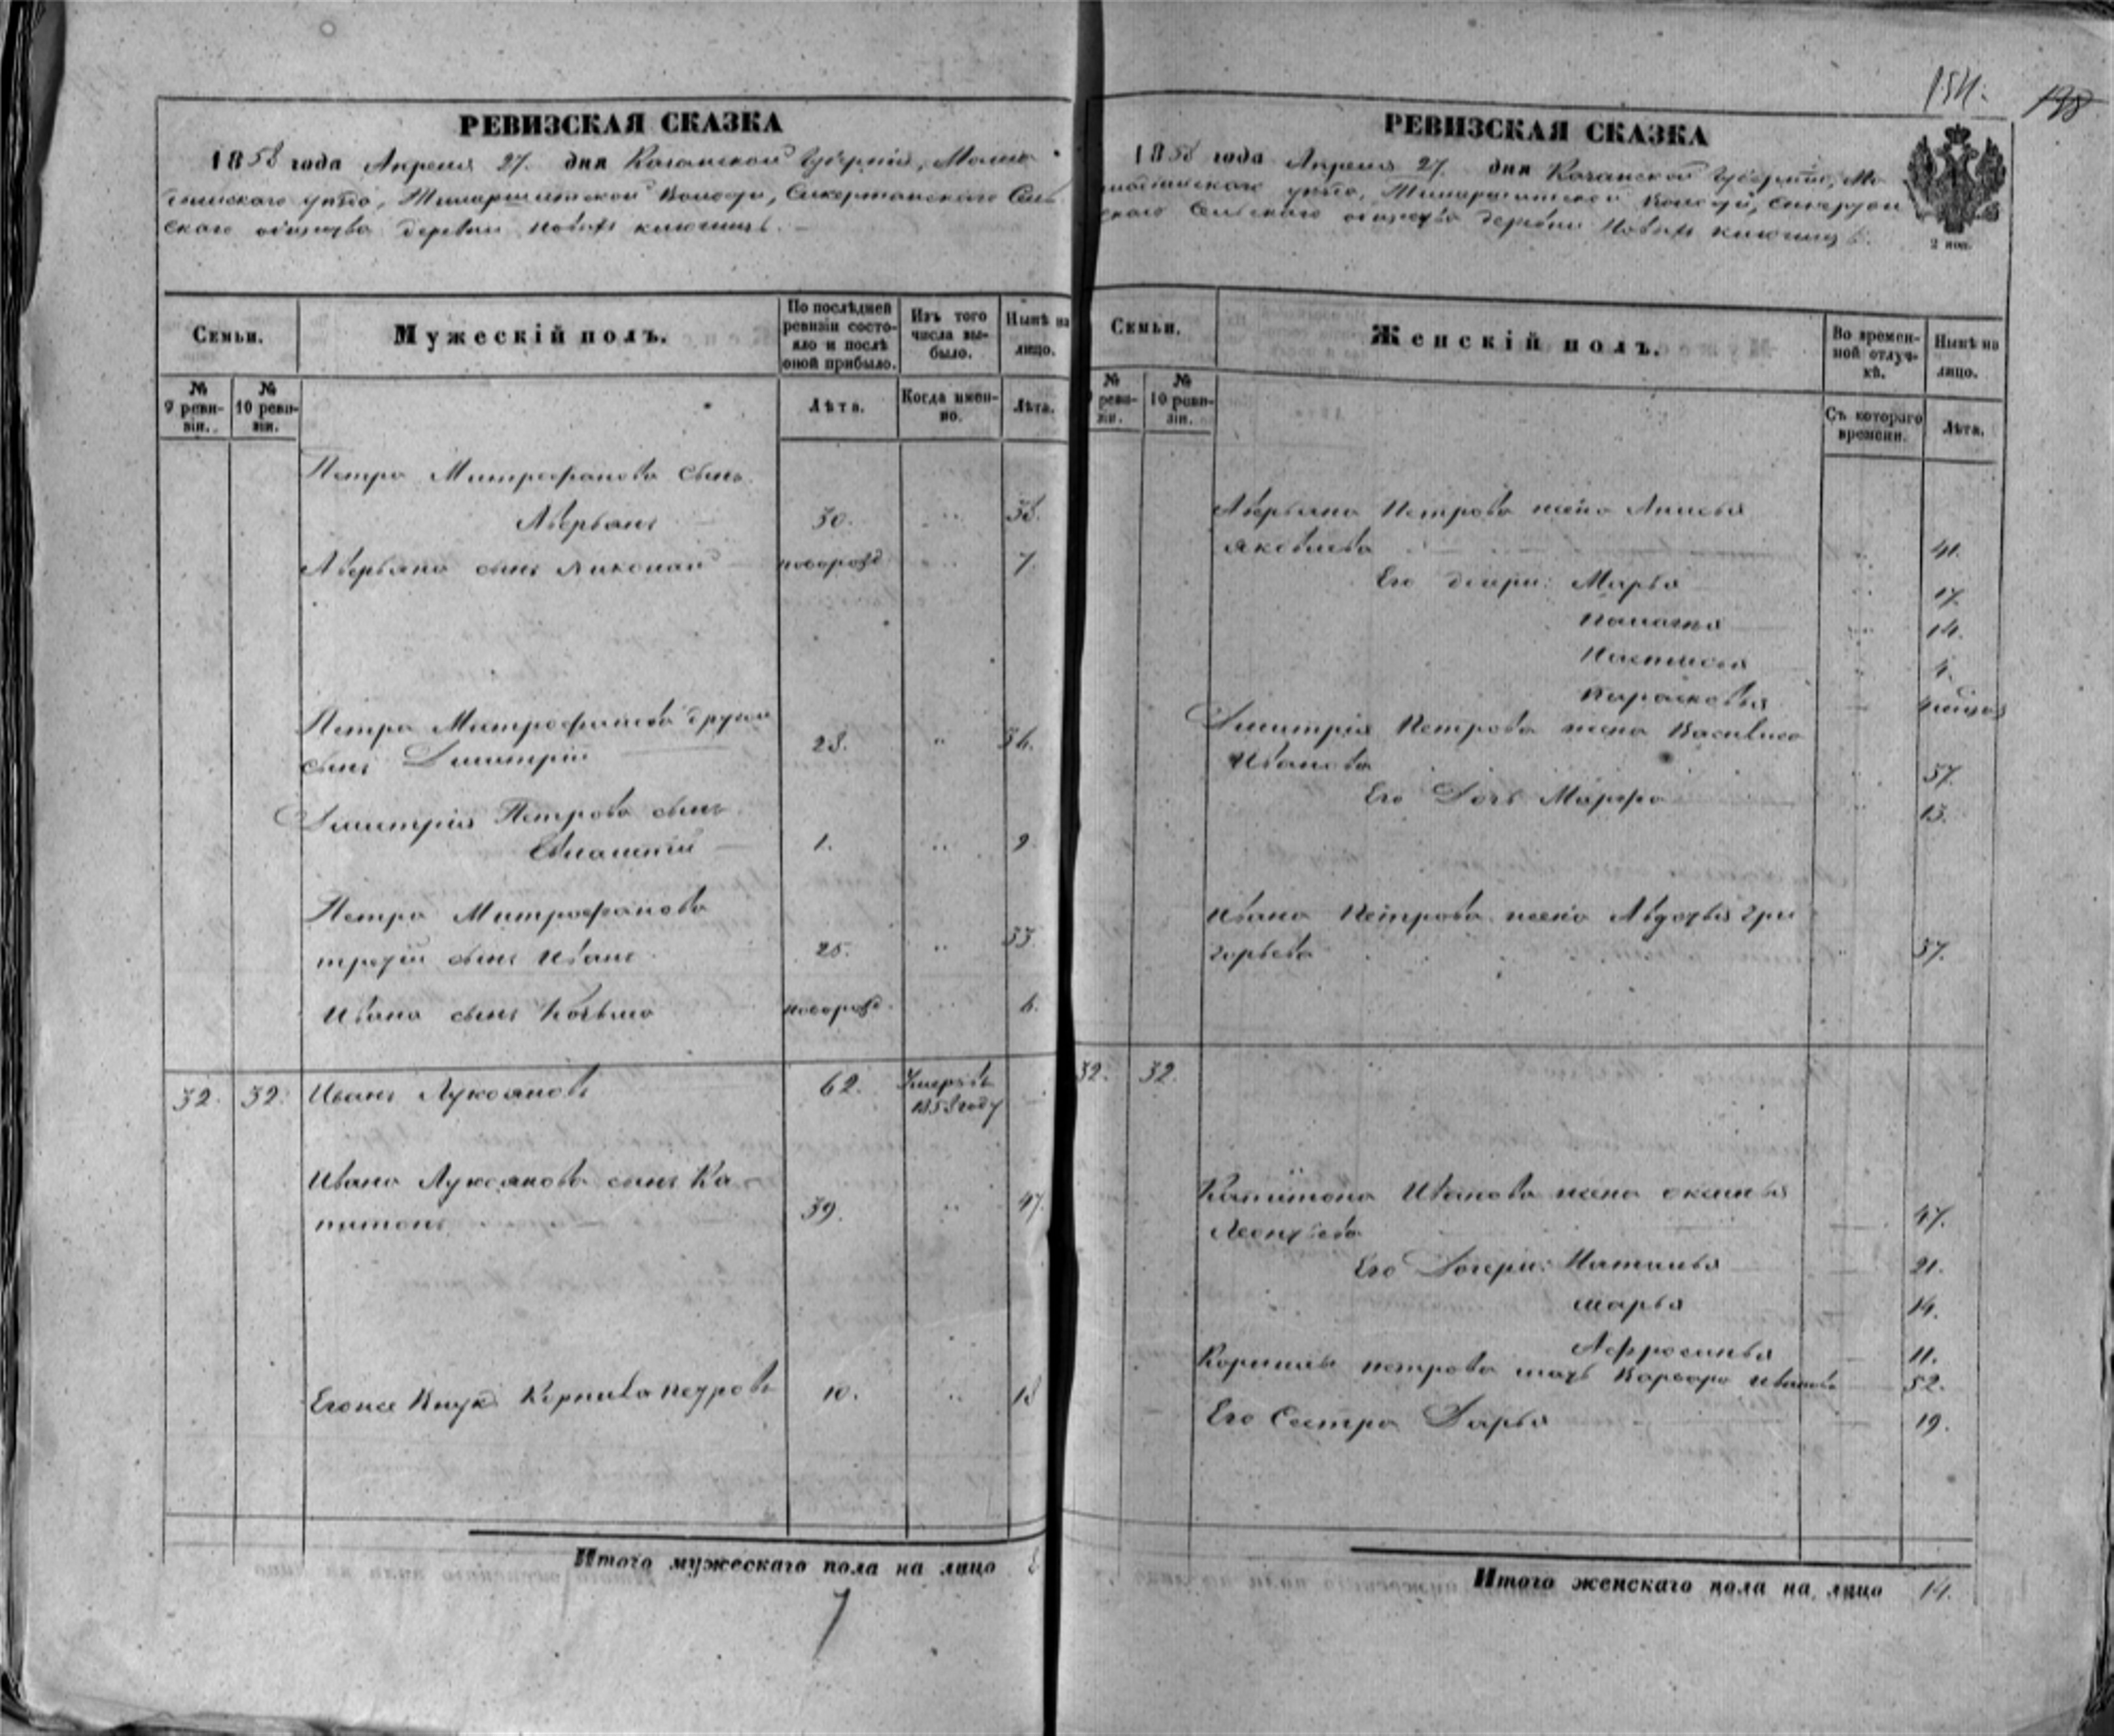 154.
198
РЕВИЗСКАЯ СКАЗКА
1858 года Апреля 27. дня Казанской Губерніи, Мама
дышскаго уѣзда, Волости, Сель
скаго общества деревни Новыхъ ключищъ.
Семьи.
Мужескій полъ.
По послѣдней ревизіи состояло и послѣ оной прибыло.
Изъ того числа выбыло.
Нынѣ на лицо.
№ 9 ревизіи.
№ 10 ревизіи.
Лѣта.
Когда именно.
Лѣта.
Петра Митрофанова сынъ
Аверьянъ 30. 38.
Аверьяна сынъ Николай новорожд 7.
Петра Митрофанова другой
сынъ Дмитрій 28. 36.
Дмитрія Петрова сынъ
Евлампій 1. 9.
Петра Митрофанова
третій сынъ Иванъ 25. 33.
Ивана сынъ Козьма новорожд. 6.
32. 32. Иванъ Лукояновъ 62. Умеръ въ
1853 году
Ивана Лукоянова сынъ Ка
питонъ 39. 47.
Егоже Внукъ Корнила Петровъ 10. 18
Итого мужескаго пола на лицо
7
РЕВИЗСКАЯ СКАЗКА
1858 года Апреля 27. дня Казанской Губерніи, Ма
мадышскаго уѣзда, Волости,
скаго Сельскаго общества деревни Новыхъ ключищъ.
2 коп.
Семьи.
Женскій полъ.
Во временной отлучкѣ.
Нынѣ на лицо.
9 ревизіи.
№ 10 ревизіи.
Съ котораго времени.
Лѣта.
Аверьяна Петрова жена Анисья
Яковлева 41.
Его дочери: Марья 17.
Палагея 14.
Настасья 4.
Парасковья
Дмитрія Петрова жена Василиса
Иванова 37.
Его Дочь Марфа 13.
Ивана Петрова жена Авдотья Гри
горьева 37.
32. 32.
Капитона Иванова жена Оксинья
Леонтьева 47.
Его Дочери: Наталья 21.
Марья 14.
Афросинья 11.
Корнилы Петрова мать Варвара Иванова 52.
Его Сестра Дарья 19.
Итого женскаго пола на лицо 14.